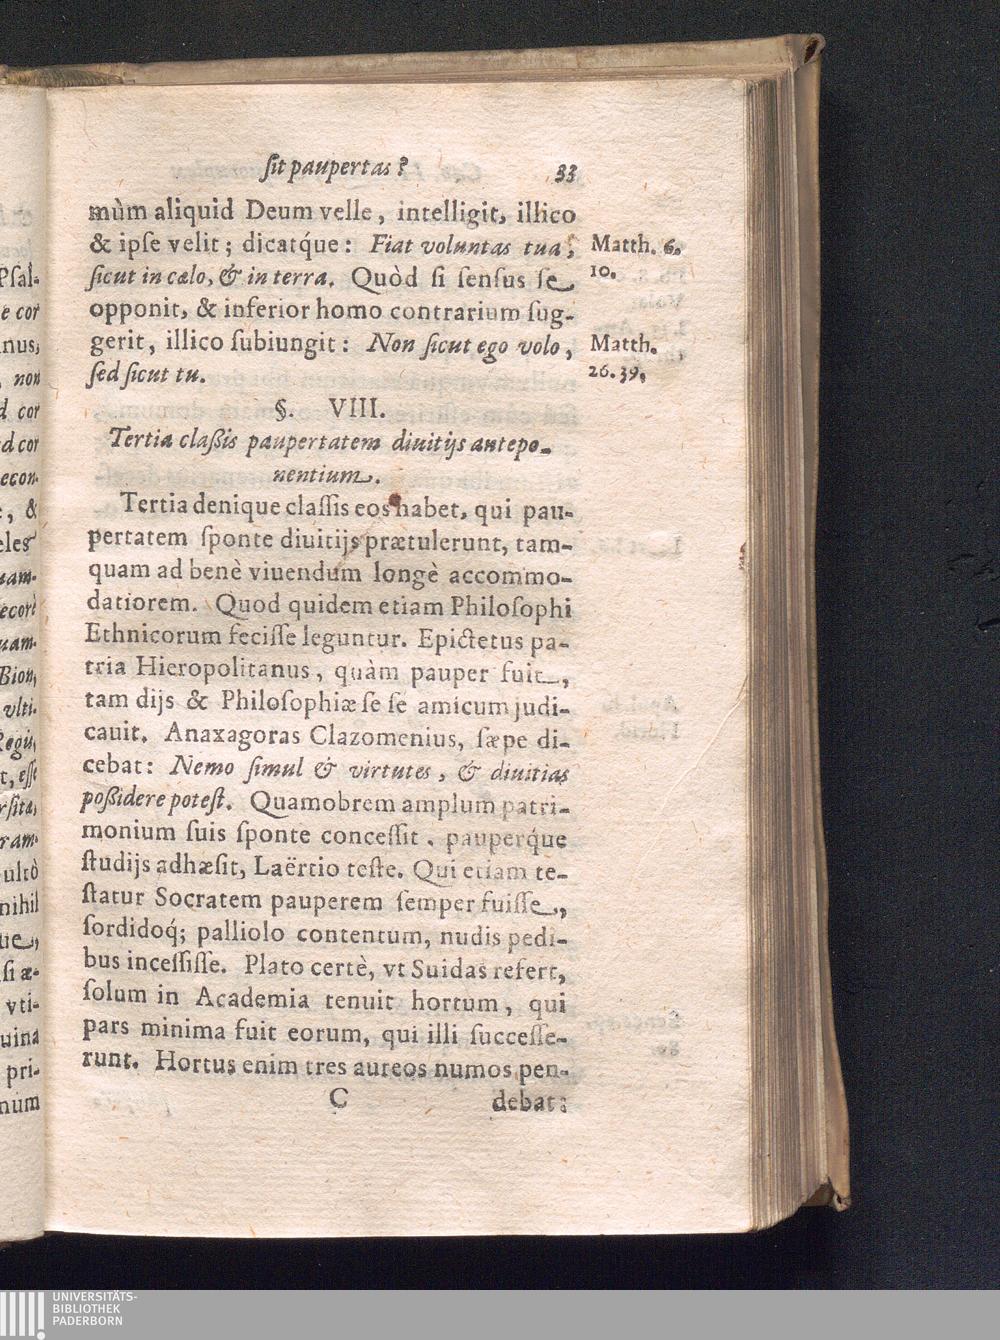 ſit paupertas? 33
mùm aliquid Deum velle, intelligit, illico
& ipſe velit; dicatq́ue: Fiat voluntas tua, Matth. 6.
ſicut in cælo, & in terra. Quòd ſi ſenſus ſe 10.
opponit, & inferior homo contrarium ſug-
gerit, illico ſubiungit: Non ſicut ego volo, Matth.
ſed ſicut tu. 26. 39.
§. VIII.
Tertia claßis paupertatem diuitijs antepo-
nentium.
Tertia denique claſſis eos habet, qui pau-
pertatem ſponte diuitijs prætulerunt, tam-
quam ad benè viuendum longè accommo-
datiorem. Quod quidem etiam Philoſophi
Ethnicorum feciſſe leguntur. Epictetus pa-
tria Hieropolitanus, quàm pauper fuit,
tam dijs & Philoſophiæ ſe ſe amicum judi-
cauit. Anaxagoras Clazomenius, ſæpe di-
cebat: Nemo ſimul & virtutes, & diuitias
poßidere poteſt. Quamobrem amplum patri-
monium ſuis ſponte conceſſit. pauperq́ue
ſtudijs adhæſit, Laërtio teſte. Qui etiam te-
ſtatur Socratem pauperem ſemper fuiſſe,
ſordidoq́; palliolo contentum, nudis pedi-
bus inceſſiſſe. Plato certè, vt Suidas refert,
ſolum in Academia tenuit hortum, qui
pars minima fuit eorum, qui illi ſucceſſe-
runt. Hortus enim tres aureos numos pen-
C debat:
Pſal-
e cor
nus,
non
d cor
d cor
econ-
, &
eles
uam-
ecorè
uam-
Bion,
vlti-
Regis,
t, eſſe
rſita,
ram-
ultò
nihil
ue,
ſi æ-
vti-
uina
pri-
num
UNIVERSITÄTS-
BIBLIOTHEK
PADERBORN